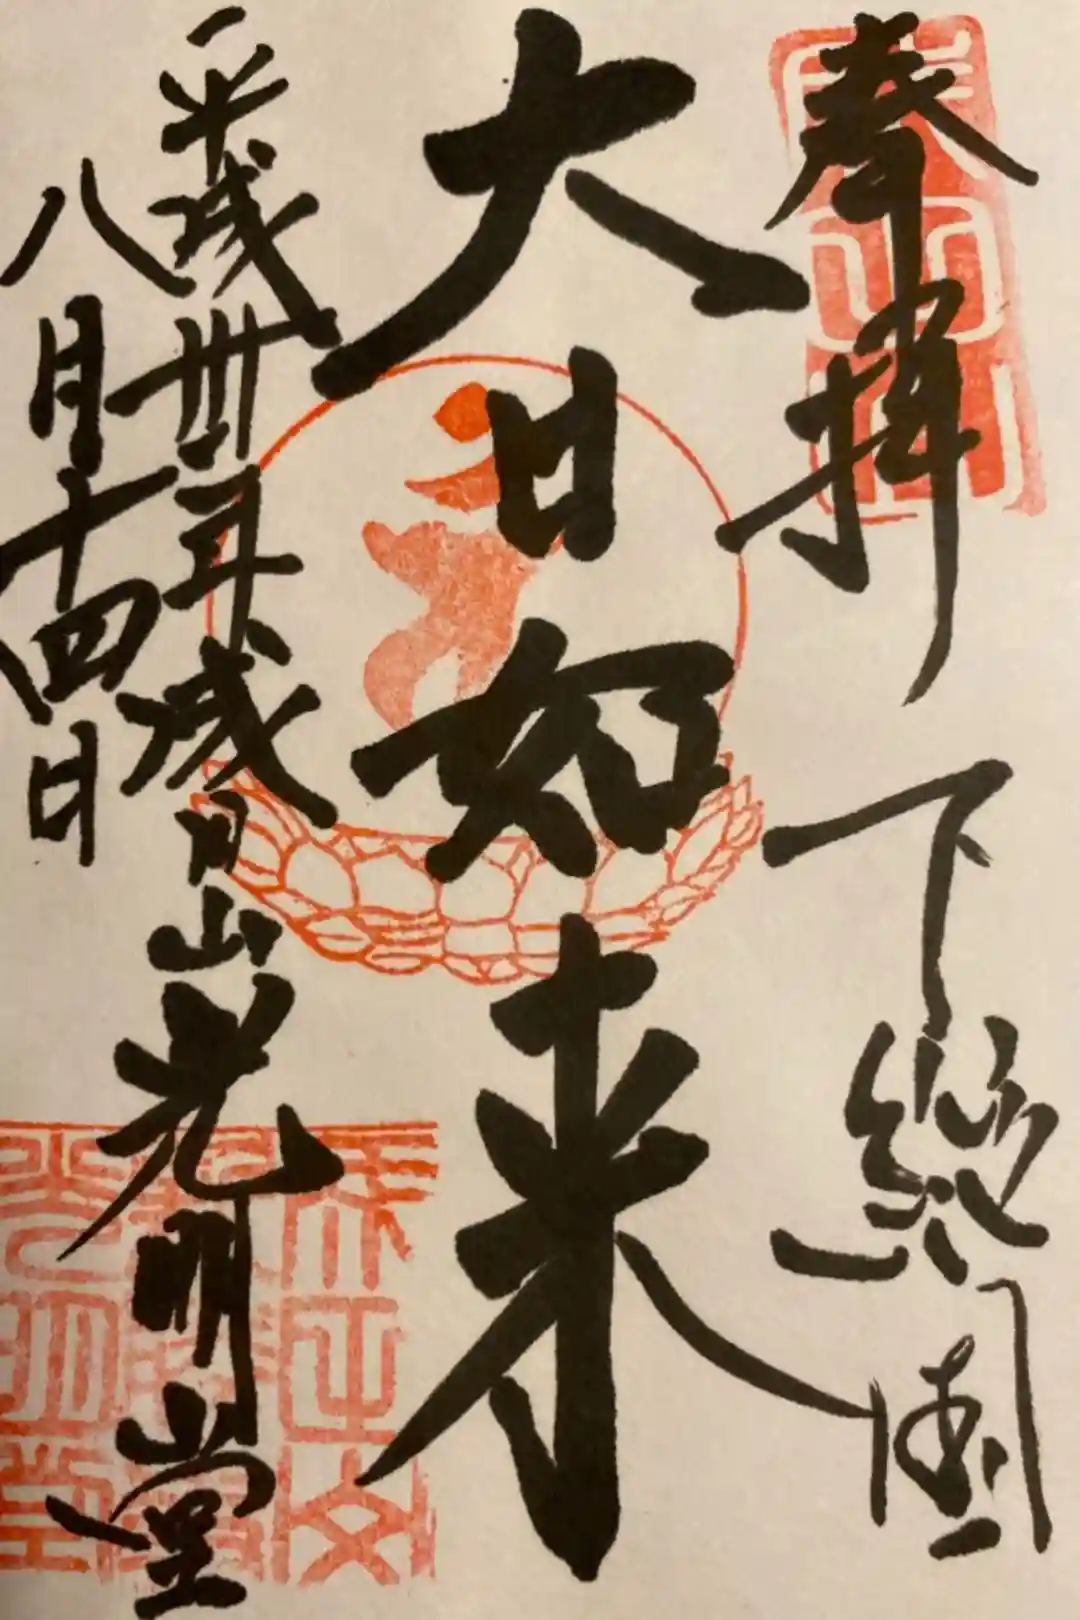 奉拝　下総國
大日如来
平成卅年　成田山光明堂
八月十四日